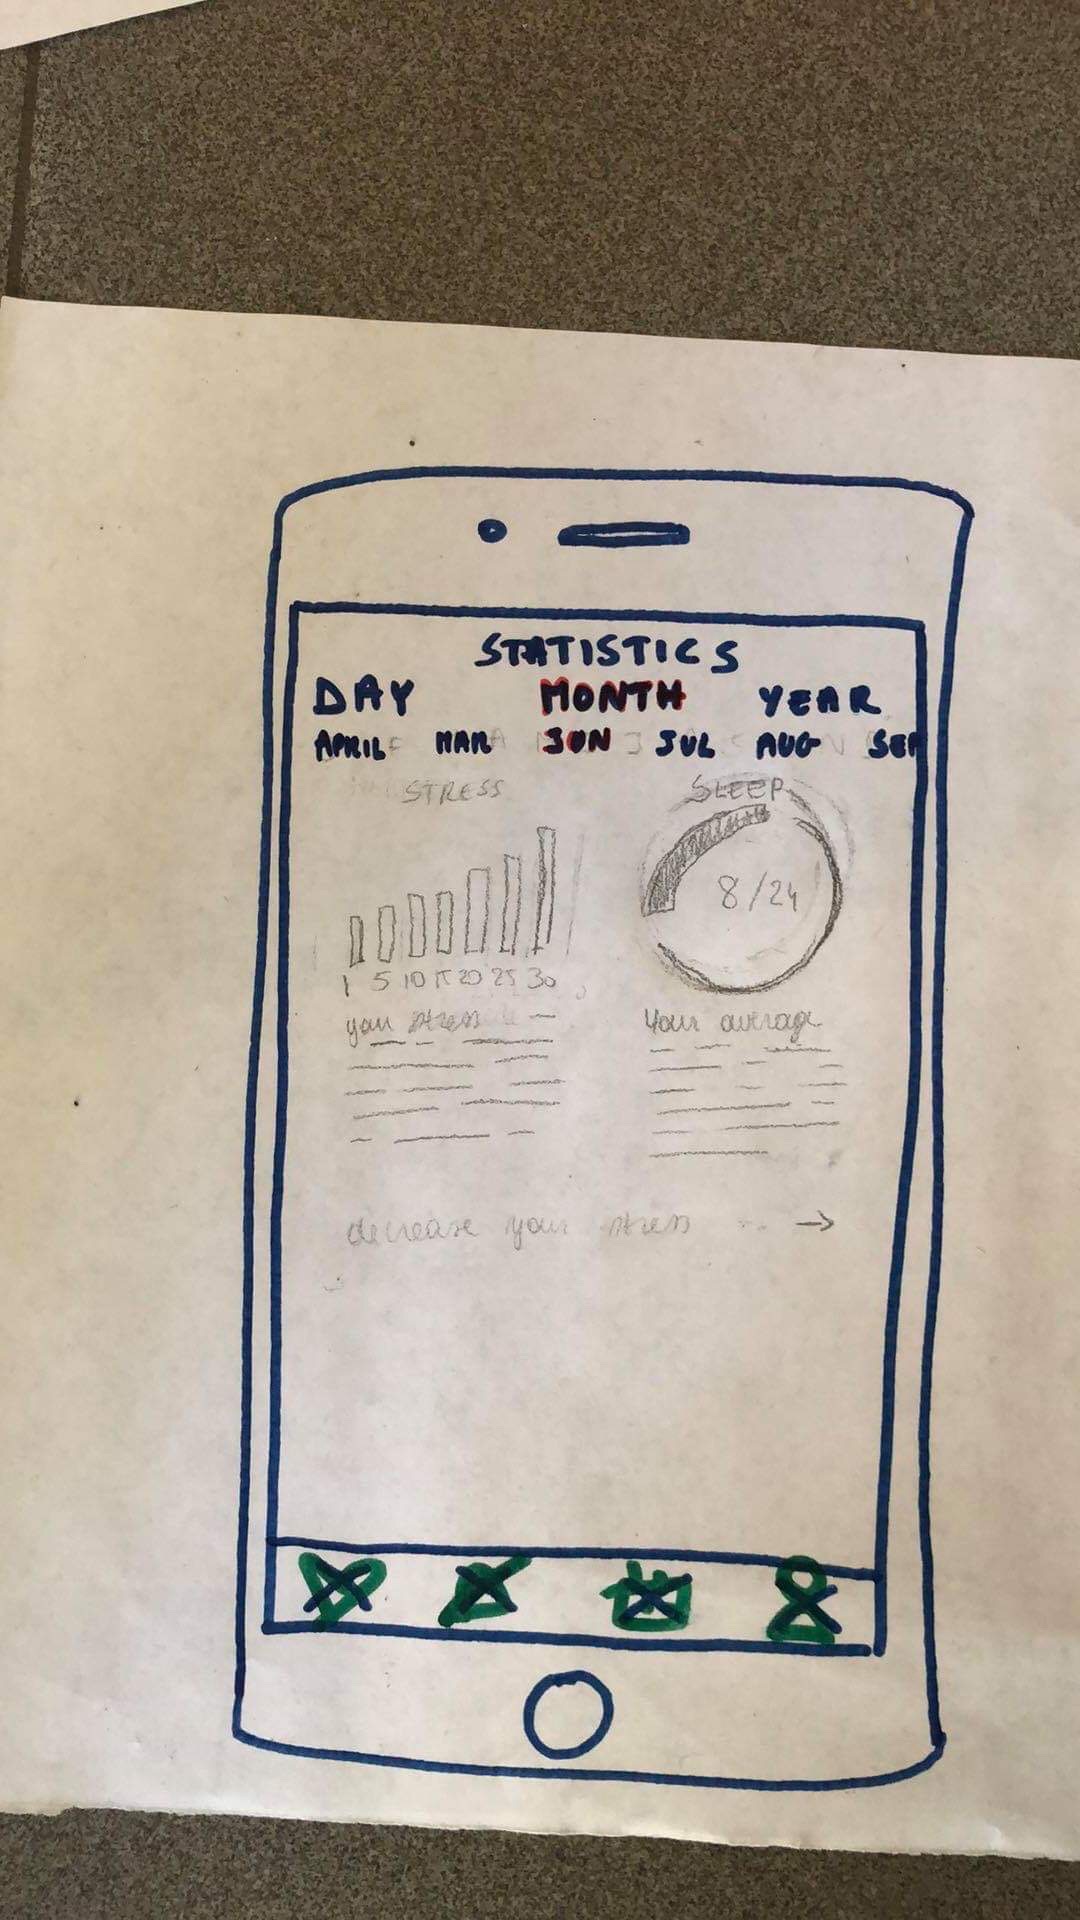 STATISTICS
DAY MONTH YEAR
APRIL MAR JUN JUL AUG SEP
STRESS SLEEP
8/24
1 5 10 15 20 25 30
your stress
Your average
decrease your stress →